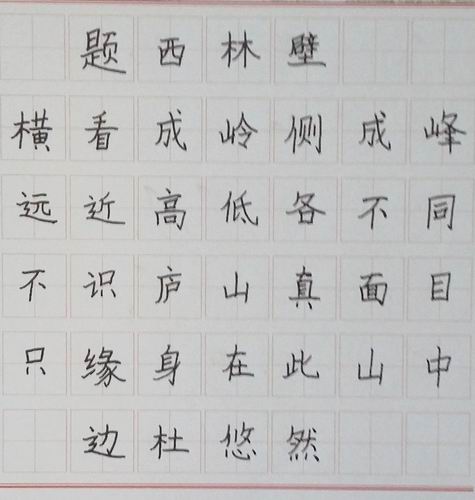 题西林壁
横看成岭侧成峰
远近高低各不同
不识庐山真面目
只缘身在此山中
边杜悠然